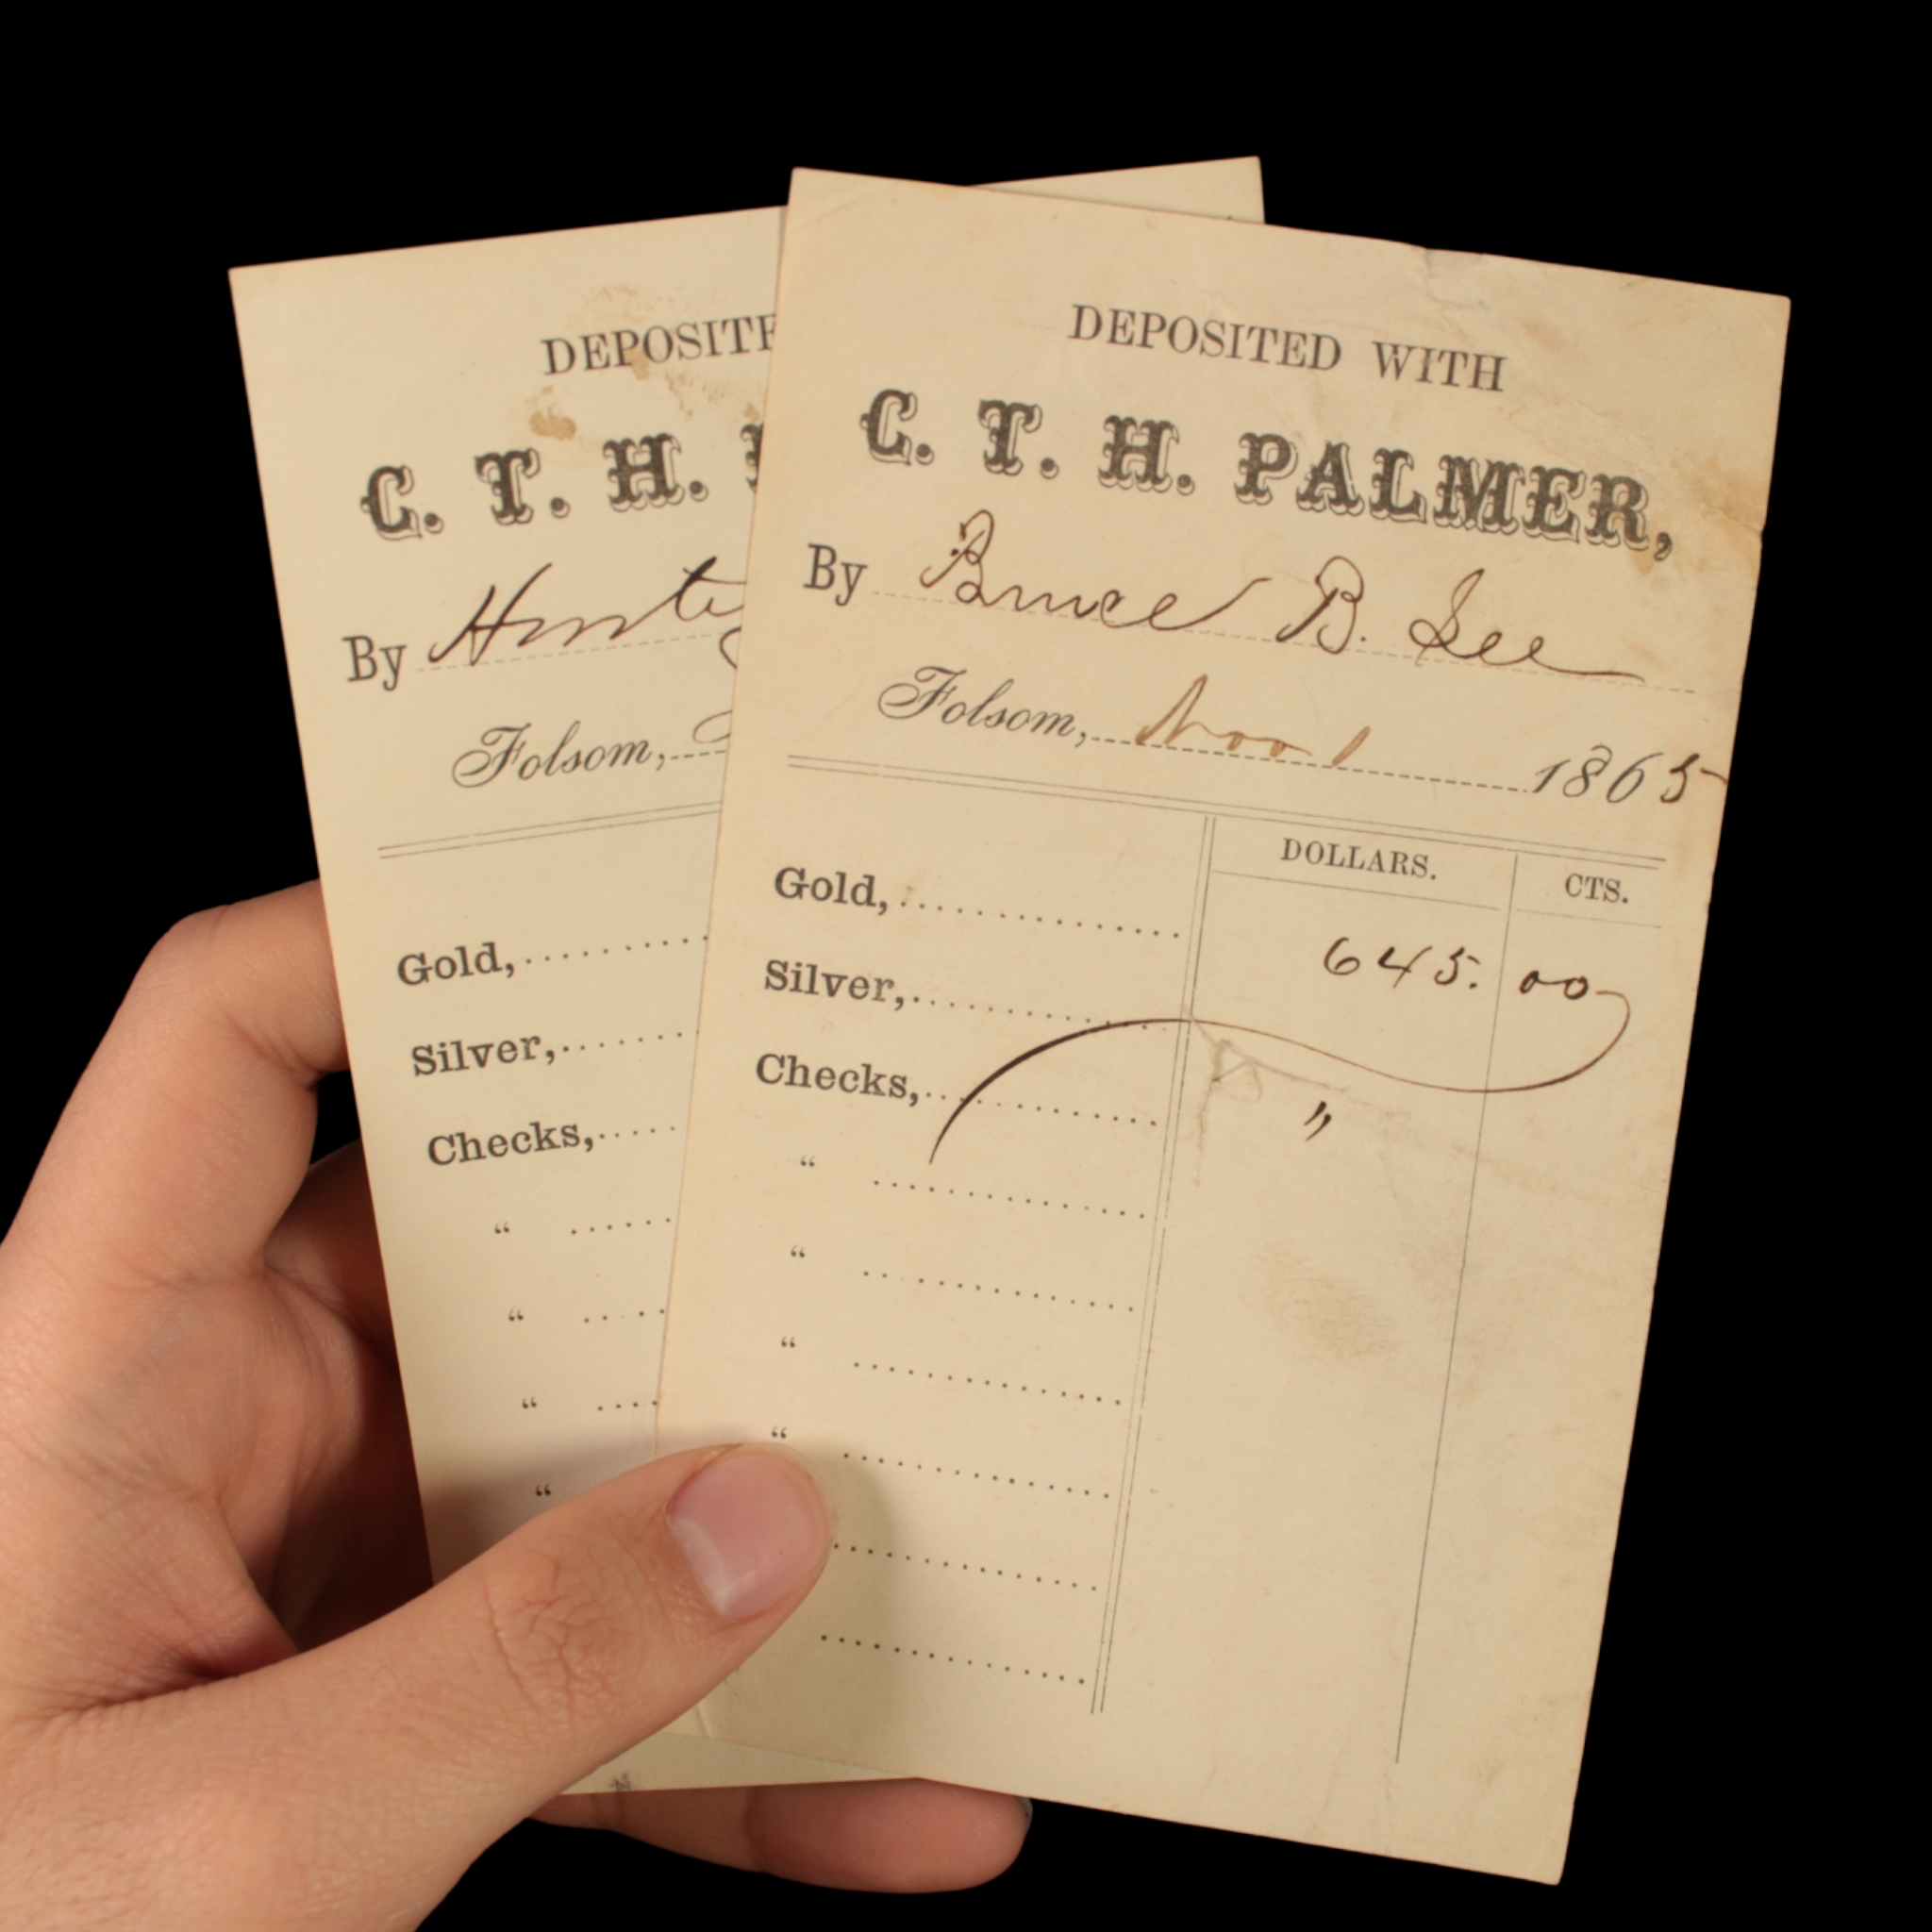 DEPOSITE
C. T. H.
By
Folsom,
Gold,
Silver,
Checks,
“
“
“
“
DEPOSITED WITH
C. T. H. PALMER,
By Bruce B. Lee
Folsom, Nov 1 1865
DOLLARS. CTS.
Gold, 645. 00
Silver,
Checks, "
“
“
“
“